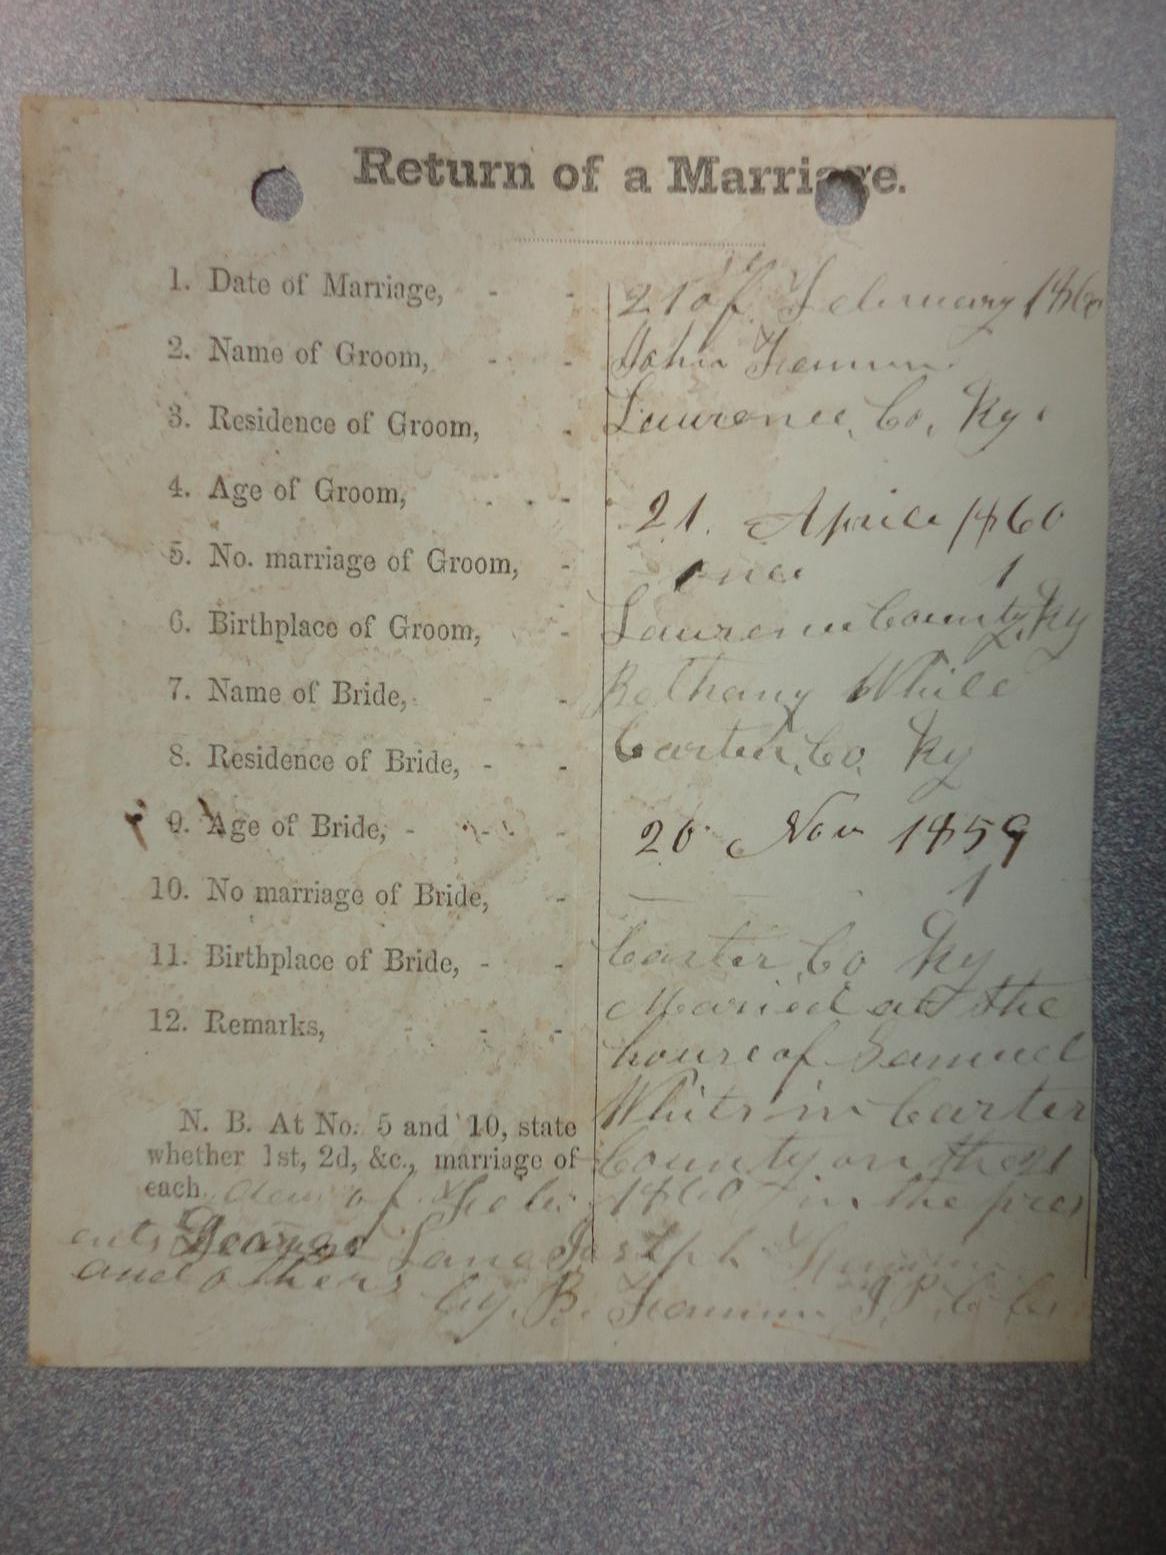 Return of a Marriage.
1. Date of Marriage, - - 21 of February 1860
2. Name of Groom, - - John
3. Residence of Groom, - Lawrence, Co, Ky.
4. Age of Groom, - - - 21. Aprile 1860
5. No. marriage of Groom, - once 1
6. Birthplace of Groom, - Lawrence County, Ky
7. Name of Bride, - - Bethany White
8. Residence of Bride, - - Carter, Co, Ky
9. Age of Bride, - - - 20 Nov 1859
10. No marriage of Bride, - 1
11. Birthplace of Bride, - - Carter, Co Ky
12. Remarks, - - - Maried at the
house of Samuel
Whits in Carter
N. B. At No. 5 and 10, state
whether 1st, 2d, &c., marriage of
each.
County on the 21
of Feb. 1860 in the pres
ents George Lane Joseph
and others by. B.